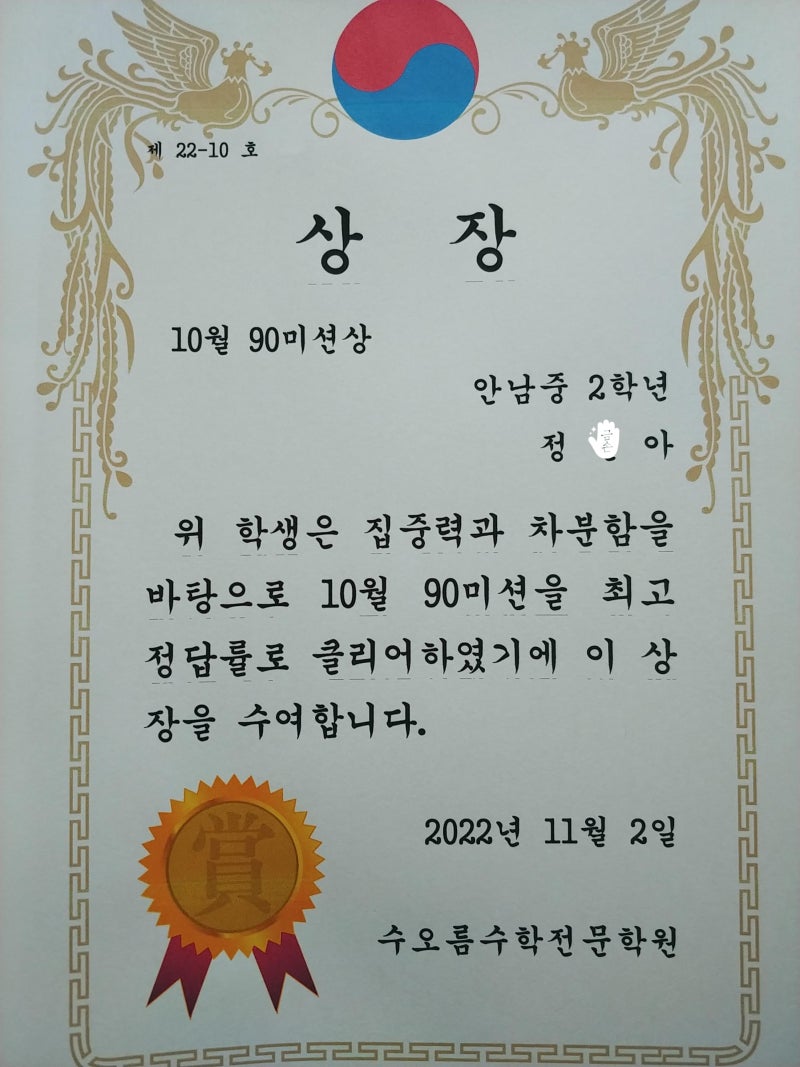 제 22-10 호
상 장
10월 90미션상
안남중 2학년
정 아
위 학생은 집중력과 차분함을
바탕으로 10월 90미션을 최고
정답률로 클리어하였기에 이 상
장을 수여합니다.
賞
2022년 11월 2일
수오름수학전문학원